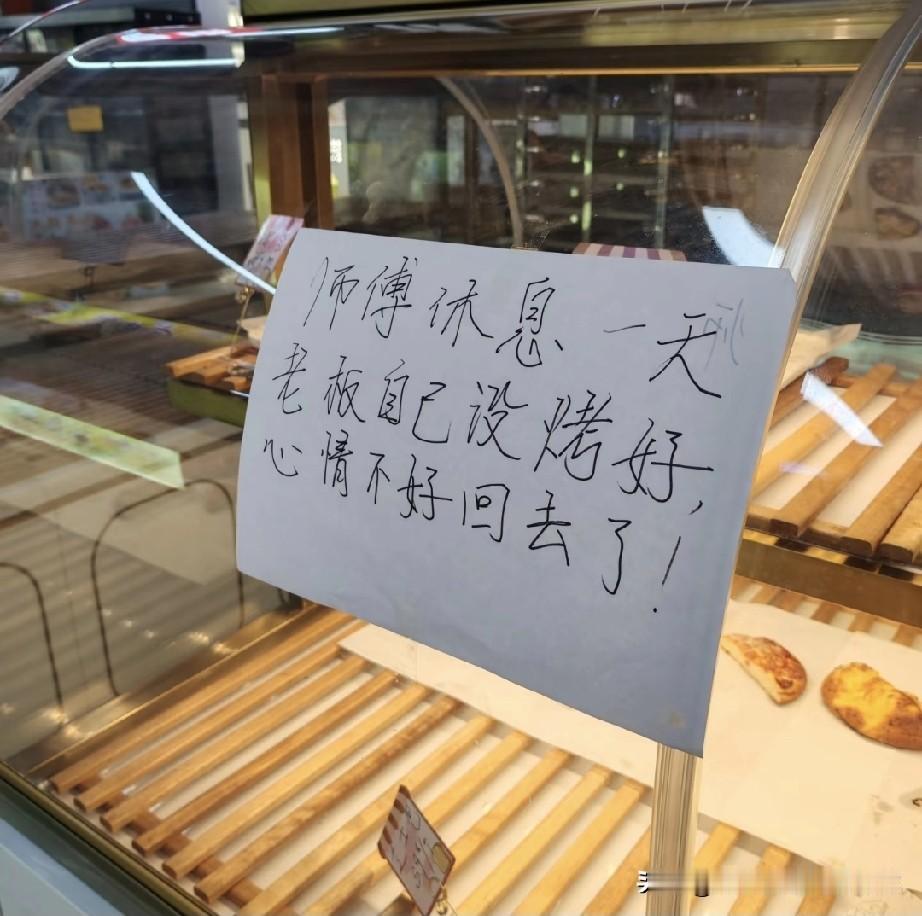 师傅休息一天
老板自己没烤好,
心情不好回去了!